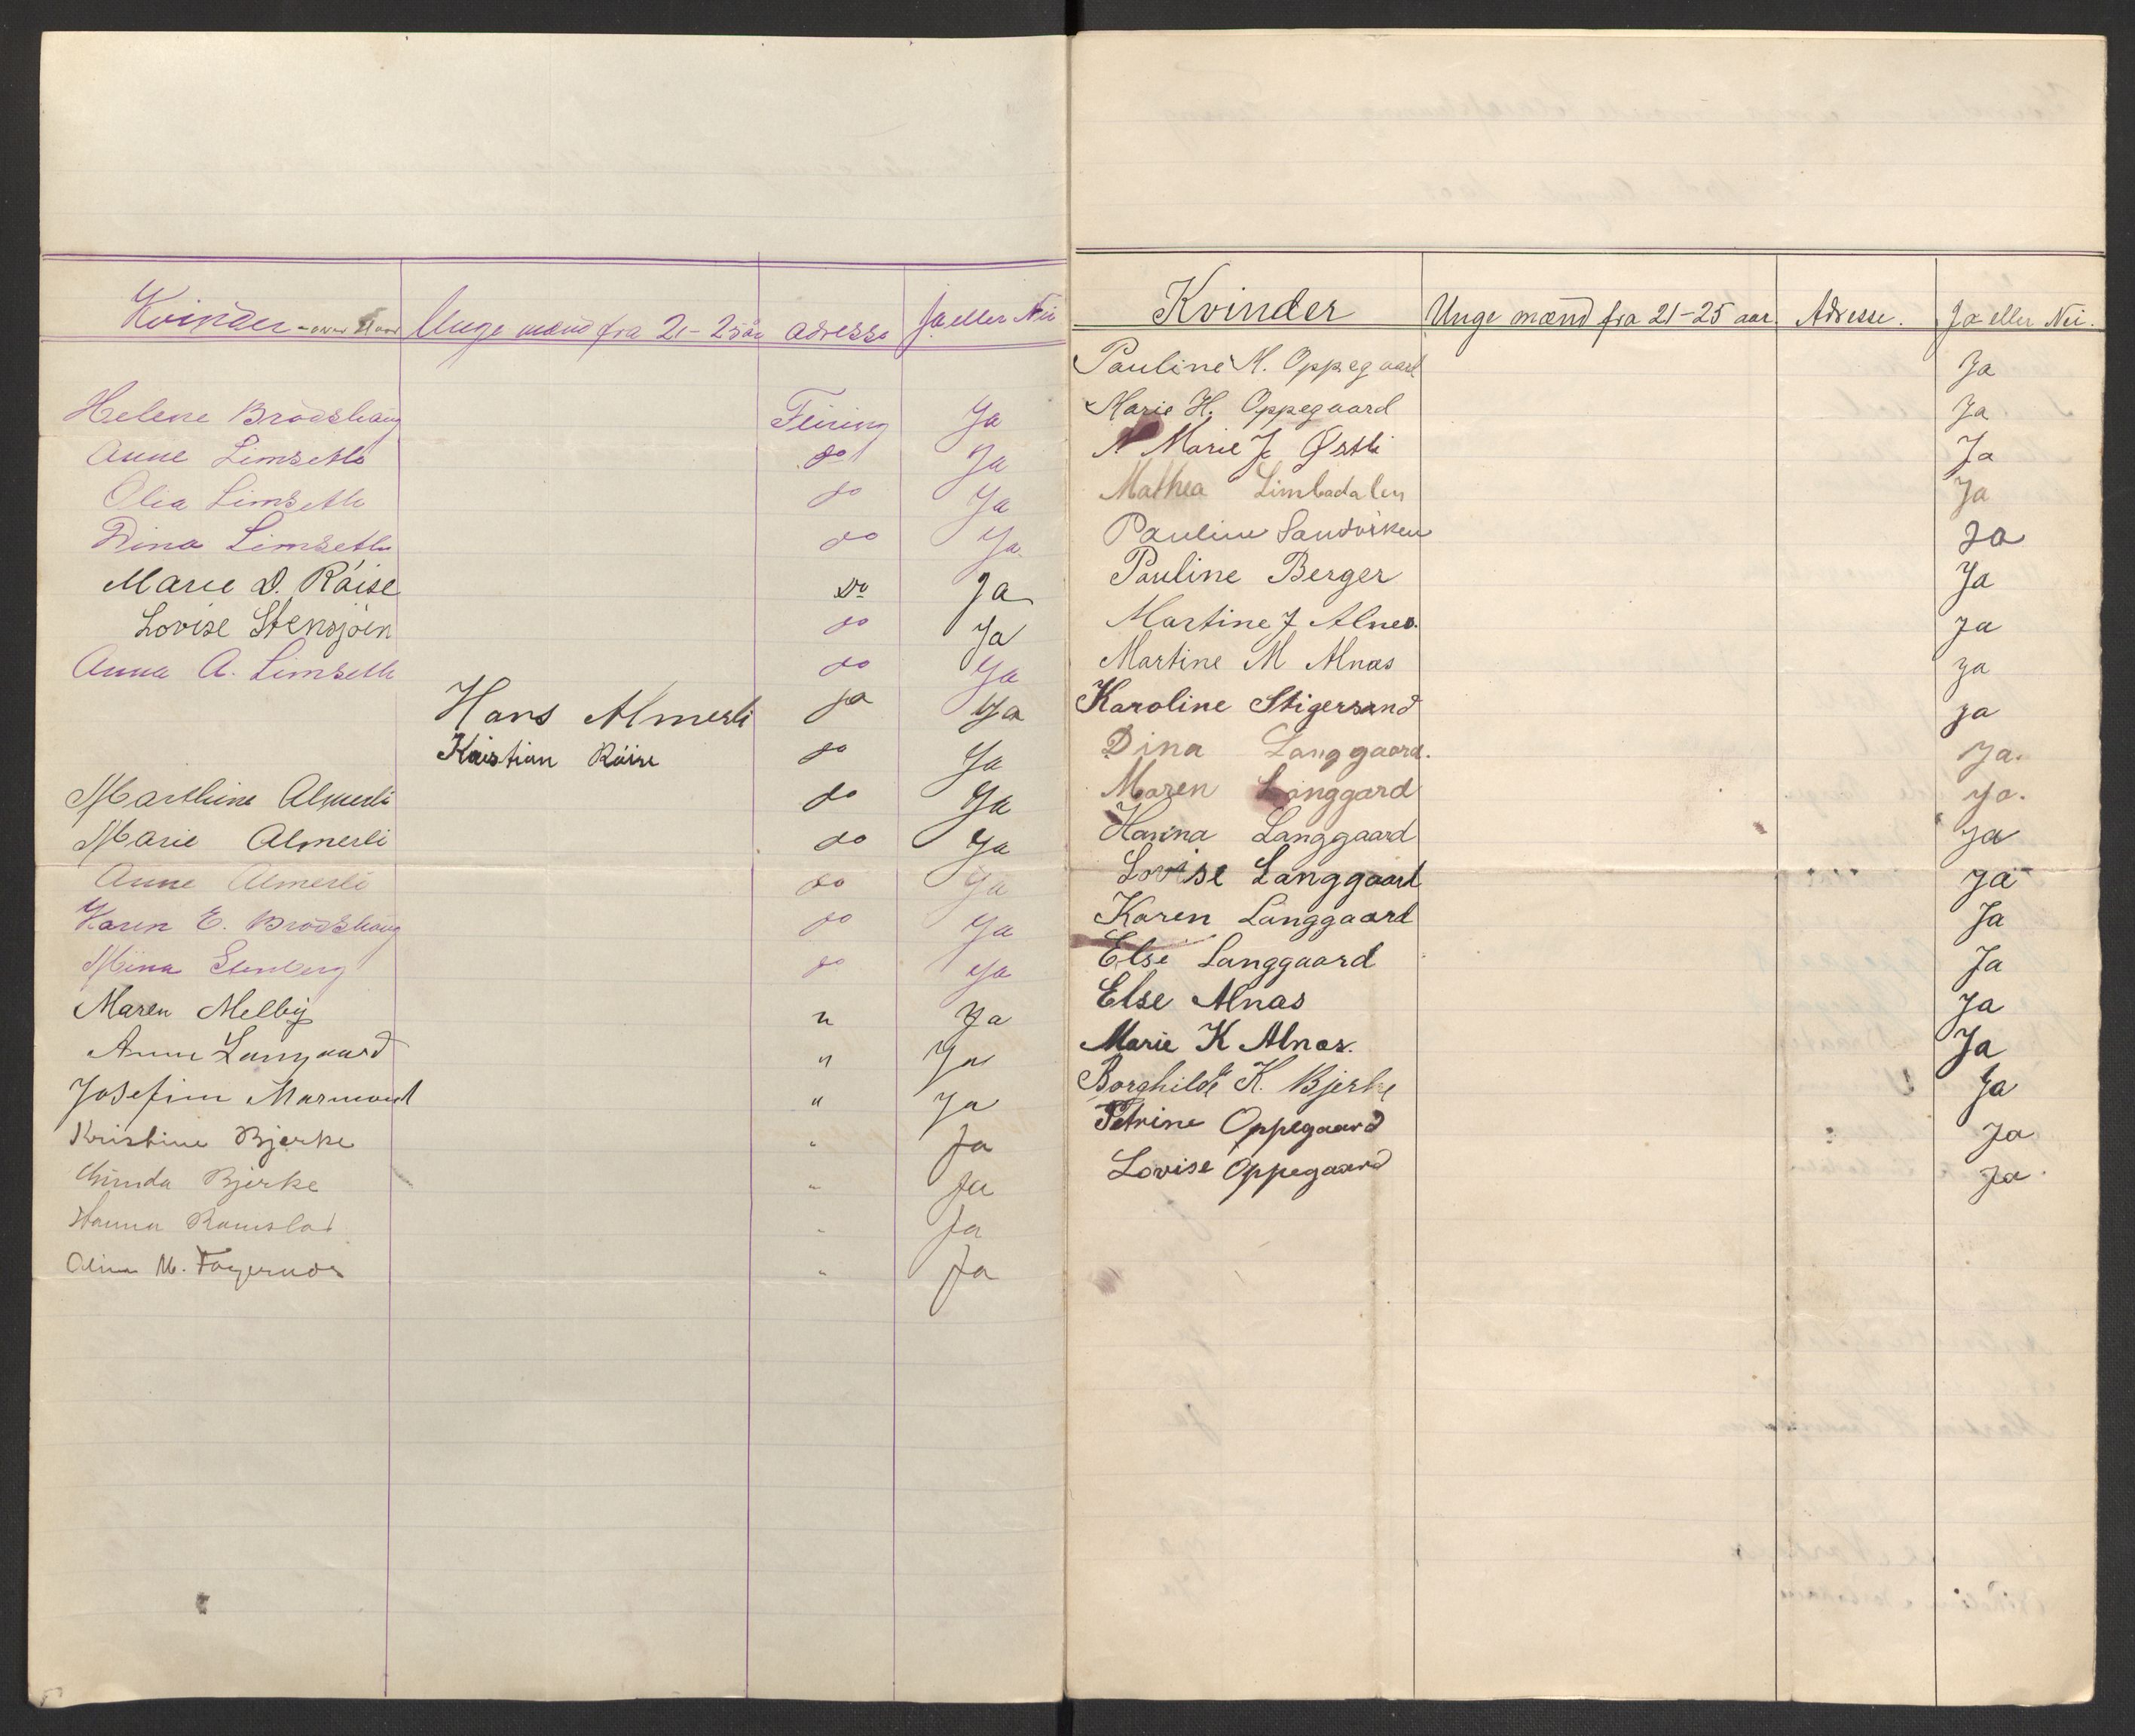 Kvinder - over 21 aar Unge mænd fra 21-25 aar adresse Ja eller Nei
Helene Brodshaug Feiring Ja
Anne Limseth do Ja
Olea Limseth do Ja
Dina Limseth do Ja
Marie D. Råise Do Ja
Lovise Stensjøen do Ja
Anna A. Limseth do Ja
Hans Almerli Ja
Kristian Råise do Ja
Marthine Almerli do Ja
Marie Almerli do Ja
Anne Almerli do Ja
Karen E. Brodshaug do Ja
Mina Stenberg do Ja
Maren Melby " Ja
Anne Langaard " Ja
Josefine " Ja
Kristine Bjerke " Ja
Gunda Bjerke " Ja
Hanna " Ja
M. Fagernes " Ja
Kvinder Unge mænd fra 21-25 aar. Adresse. Ja eller Nei.
Pauline M. Oppegaard Ja
Marie H. Oppegaard Ja
Marie J. Østli Ja
Mathea Limbadalen Ja
Pauline Sandviken Ja
Pauline Berger Ja
Martine J Alnes. Ja
Martine M Alnæs Ja
Karoline Stigersand Ja
Dina Langgaard. Ja.
Maren Langgard Ja.
Hanna Langgaard Ja
Lovise Langgaard Ja
Karen Langgaard Ja
Else Langgaard Ja
Else Alnæs Ja
Marie K Alnæs. Ja
Borghilde K. Bjerke Ja
Petrine Oppegaard Ja
Lovise Oppegaard Ja